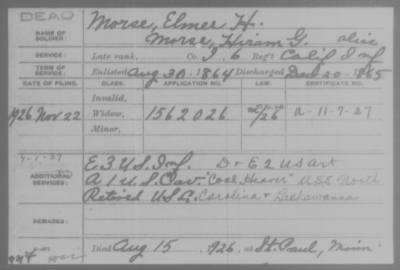 DEAD
NAME OF SOLDIER:
Morse, Elmer H.
Morse, Hiram G. alias
SERVICE:
Late rank, Co. I, 6 Reg't Calif Inf
TERM OF SERVICE:
Enlisted Aug 30, 1864 Discharged Dec 20, 1865
DATE OF FILING. CLASS. APPLICATION NO. LAW. CERTIFICATE NO.
Invalid,
1926 Nov 22 Widow, 1562026 A-11-7-27
Minor,
ADDITIONAL SERVICES:
E 3 U.S. Inf. D & E 2 US Art
A 1 U.S. Cav. "Coal Heaver" USS North
Retired U.S.A. Carolina & Lackawanna
REMARKS:
Died Aug 15, 1926, at St. Paul, Minn.